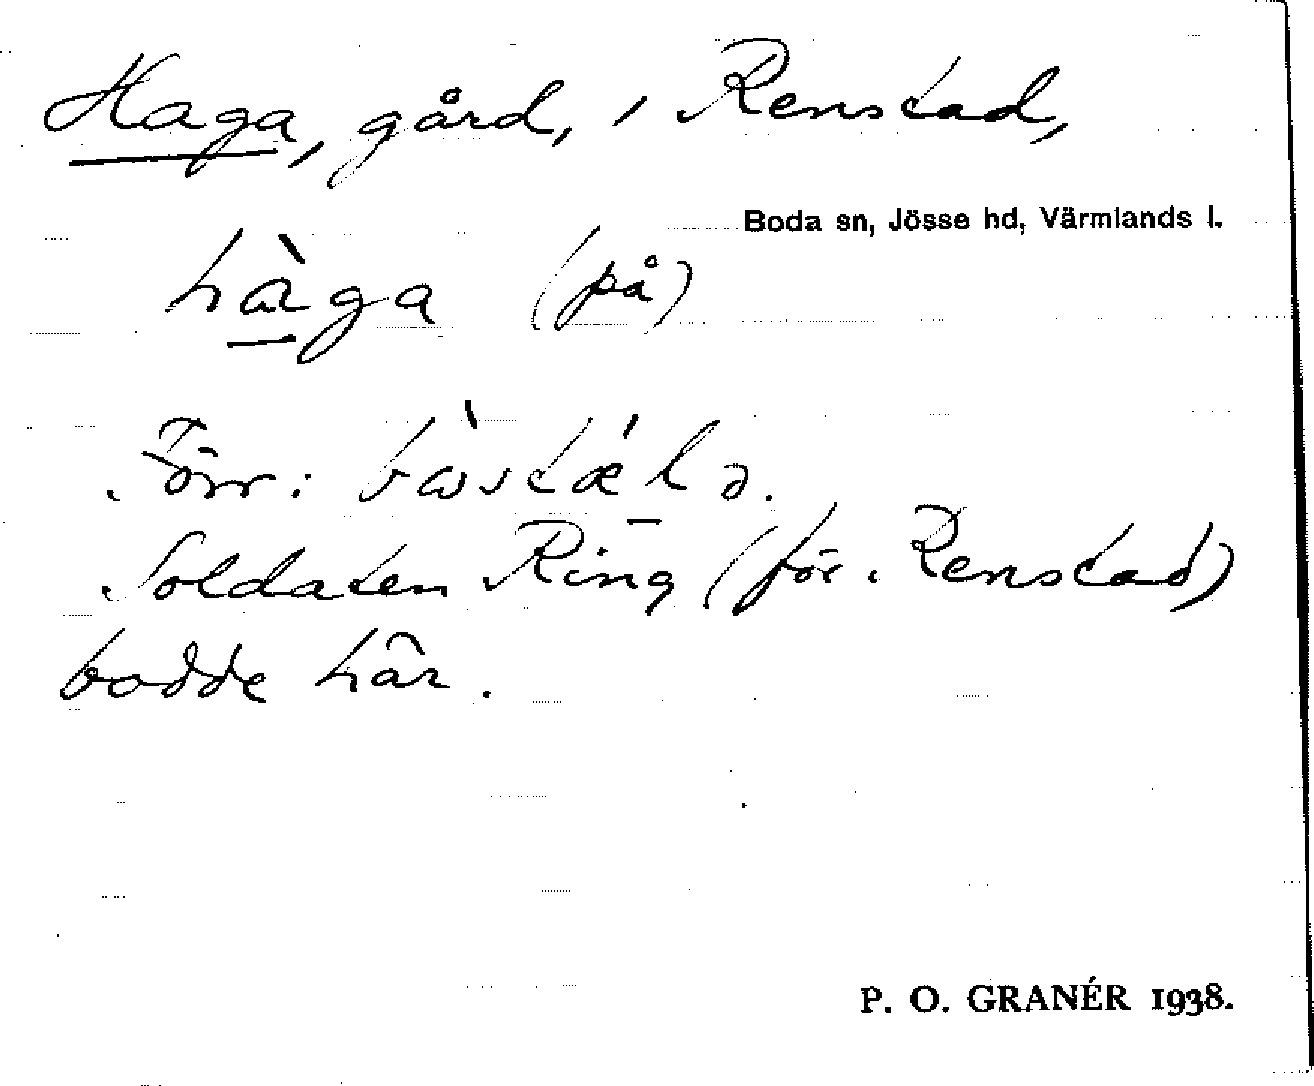 Haga, gård, i Renstad,
Boda sn, Jösse hd, Värmlands l.
hàga (på)
Förr:
Soldaten Ring (för Renstad)
bodde här.
P. O. GRANÉR 1938.